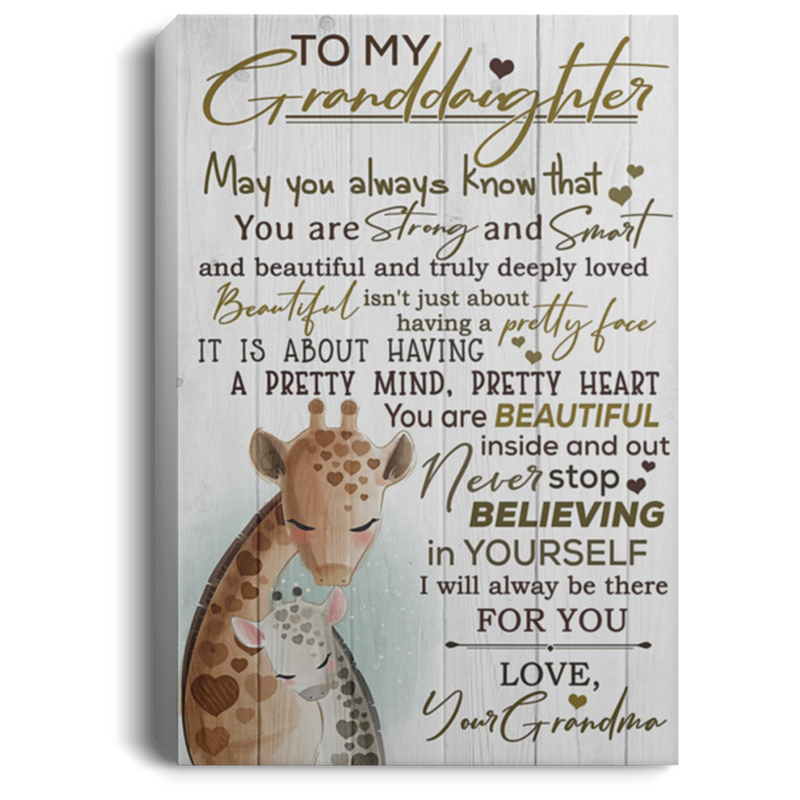 TO MY
Granddaughter
May you always know that
You are Strong and Smart
and beautiful and truly deeply loved
Beautiful isn't just about
having a pretty face
IT IS ABOUT HAVING
A PRETTY MIND, PRETTY HEART
You are BEAUTIFUL
inside and out
Never stop
BELIEVING
in YOURSELF
I will alway be there
FOR YOU
LOVE,
Your Grandma